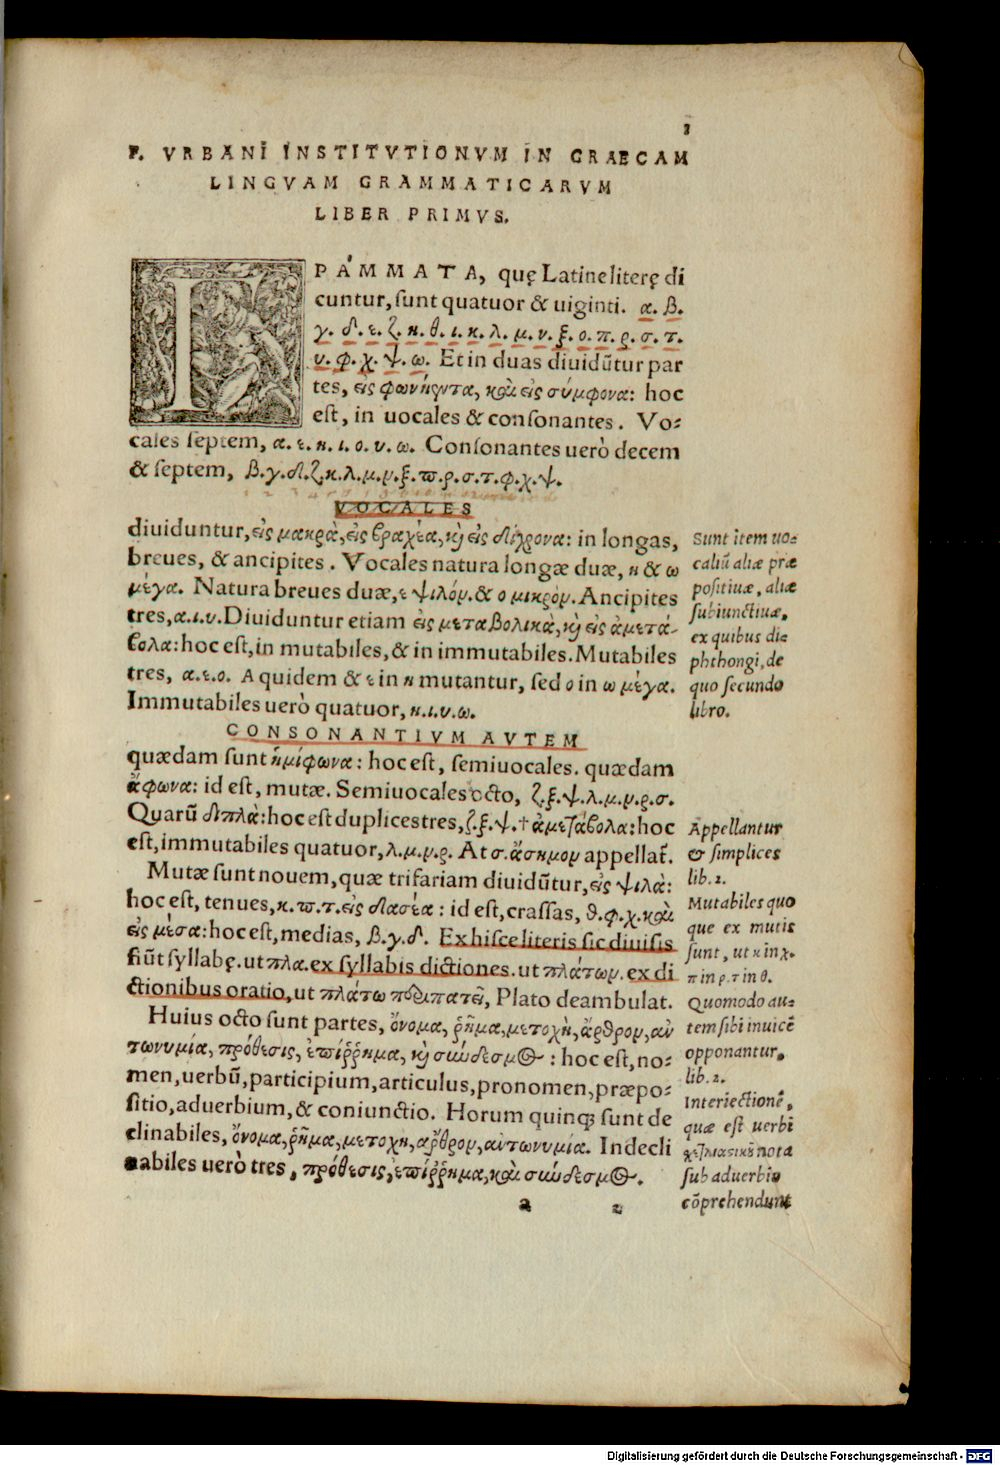 3
F. VRBANI INSTITVTIONVM IN GRAECAM
LINGVAM GRAMMATICARVM
LIBER PRIMVS.
ΓΡΆΜΜΑΤΑ, quę Latine literę di
cuntur, sunt quatuor & uiginti. α. β.
γ. δ. ε. ζ. η. θ. ι. κ. λ. μ. ν. ξ. ο. π. ρ. σ. τ.
υ. φ. χ. ψ. ω. Et in duas diuidũtur par
tes, εἰς φωνήεντα, καὶ εἰς σύμφονα: hoc
est, in uocales & consonantes. Vo-
cales septem, α. ε. η. ι. ο. υ. ω. Consonantes uerò decem
& septem, β.γ.δ.ζ.κ.λ.μ.ν.ξ.π.ρ.σ.τ.φ.χ.ψ.
VOCALES
diuiduntur, εἰς μακρὰ, εἰς βραχέα, κὶ εἰς δίχρονα: in longas,
breues, & ancipites. Vocales natura longæ duæ, η & ω
μέγα. Natura breues duæ, ε ψιλόν. & ο μικρὸν. Ancipites
tres, α.ι.υ. Diuiduntur etiam εἰς μεταβολικὰ, κὶ εἰς ἀμετά-
βολα: hoc est, in mutabiles, & in immutabiles. Mutabiles
tres, α.ε.ο. A quidem & ε in η mutantur, sed ο in ω μέγα.
Immutabiles uerò quatuor, η.ι.υ.ω.
CONSONANTIVM AVTEM
quædam sunt ἡμίφωνα: hoc est, semiuocales. quædam
ἄφωνα: id est, mutæ. Semiuocales octo, ζ.ξ.ψ.λ.μ.ν.ρ.σ.
Quarũ διπλὰ: hoc est duplices tres, ζ.ξ.ψ.† ἀμετάβολα: hoc
est, immutabiles quatuor, λ.μ.ν.ρ. At σ. ἄσημον appellat̃.
Mutæ sunt nouem, quæ trifariam diuidũtur, εἰς ψιλὰ:
hoc est, tenues, κ.π.τ. εἰς δασέα: id est, crassas, θ.φ.χ. καὶ
εἰς μέσα: hoc est, medias, β.γ.δ. Ex hisce literis sic diuisis
fiũt syllabę. ut πλα. ex syllabis dictiones. ut πλάτων. ex di
ctionibus oratio, ut πλάτω περιπατεῖ, Plato deambulat.
Huius octo sunt partes, ὄνομα, ῥῆμα, μετοχὴ, ἄρθρον, αν
τωνυμία, πρόθεσις, ἐπίῤῥημα, κὶ σύνδεσμος: hoc est, no-
men, uerbũ, participium, articulus, pronomen, præpo-
sitio, aduerbium, & coniunctio. Horum quinq; sunt de
clinabiles, ὄνομα, ῥῆμα, μετοχη, αρθρον, αντωνυμία. Indecli
nabiles uerò tres, πρόθεσις, ἐπίῤῥημα, καὶ σύνδεσμος.
a 2
Sunt item uo-
caliũ aliæ præ
positiuæ, aliæ
subiunctiuæ,
ex quibus di-
phthongi, de
quo secundo
libro.
Appellantur
& simplices
lib. 2.
Mutabiles quo
que ex mutis
sunt, ut κ in χ.
π in φ. τ in θ.
Quomodo au-
tem sibi inuicē
opponantur,
lib. 2.
Interiectionē,
quæ est uerbi
nota
sub aduerbio
cōprehendunt
Digitalisierung gefördert durch die Deutsche Forschungsgemeinschaft - DFG